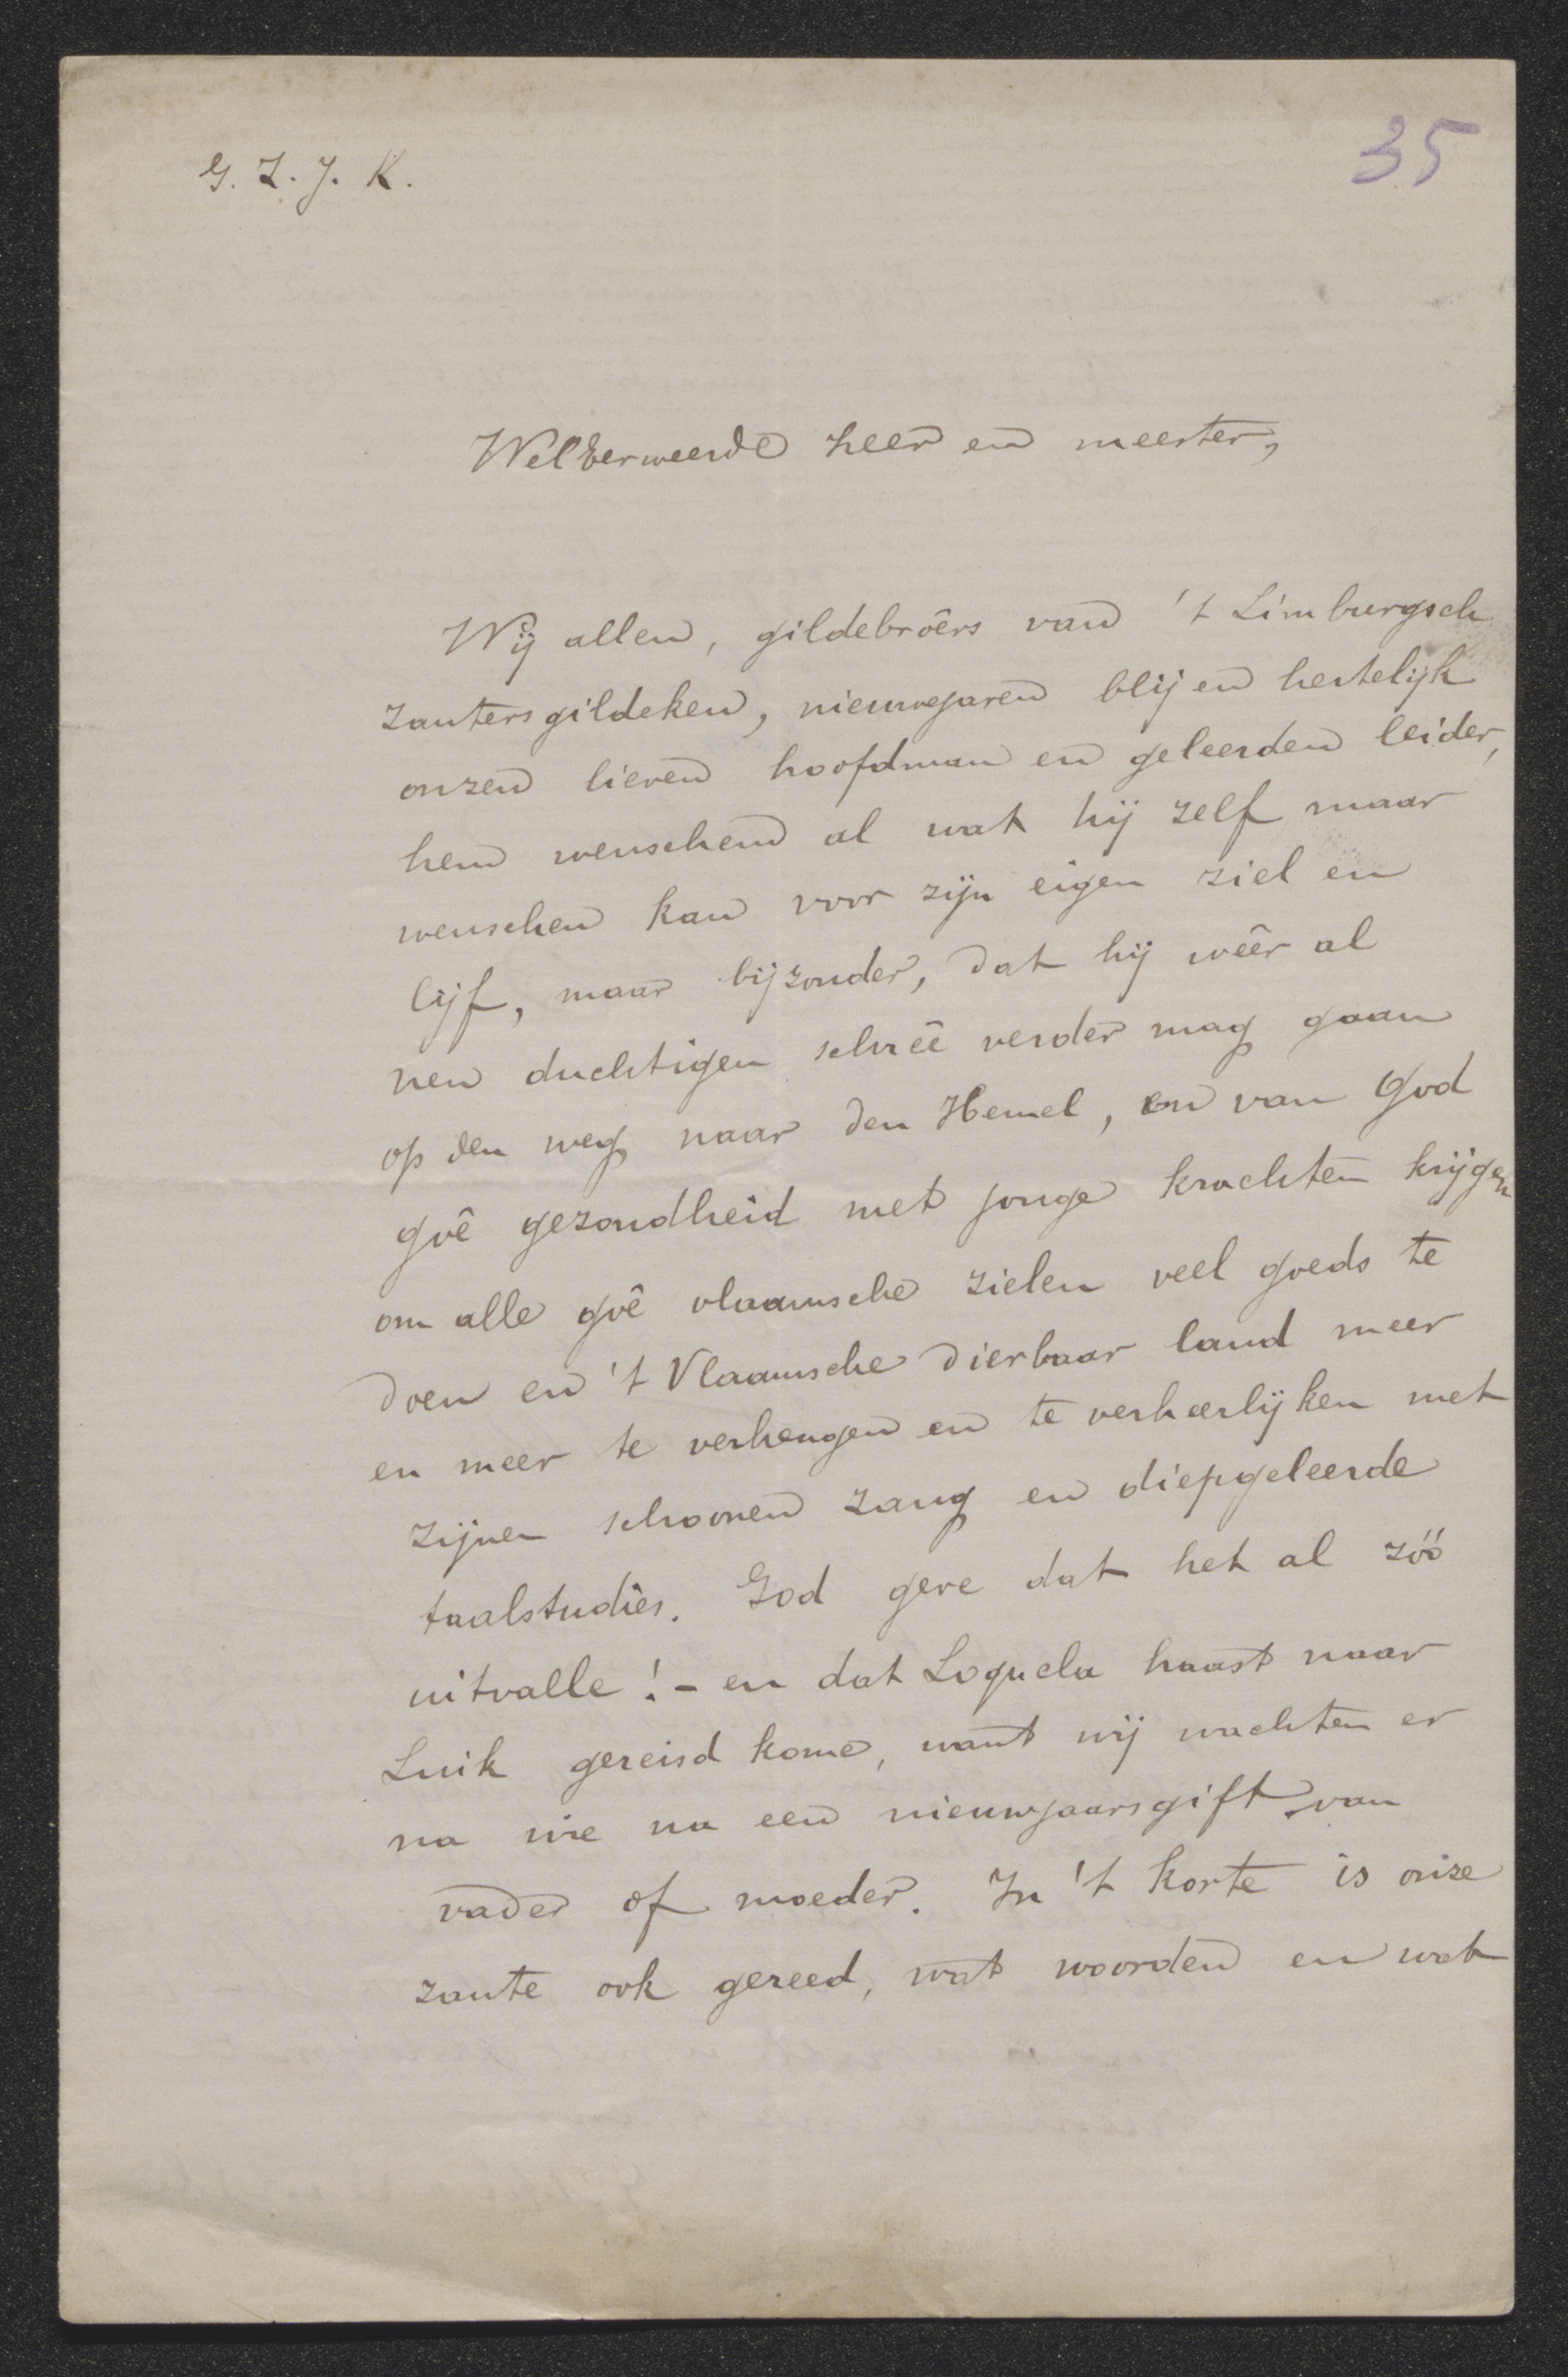 G. Z. J. K.
35
WelEerweerde heer en meester,
Wij allen, gildebroêrs van 't Limburgsch
zantersgildeken, nieuwejaren blij en hertelijk
onzen lieven hoofdman en geleerden leider,
hem wenschend al wat hij zelf maar
wenschen kan voor zijn eigen ziel en
lijf, maar bijzonder, dat hij wêer al
nen duchtigen schreê verder mag gaan
op den weg naar den Hemel, en van God
goê gezondheid met jonge krachten krijgen
om alle goê vlaamsche zielen veel goeds te
doen en 't Vlaamsche dierbaar land meer
en meer te verheugen en te verheerlijken met
zijnen schoonen zang en diepgeleerde
taalstudiës. God geve dat het al zóó
uitvalle! - en dat Loquela haast naar
Luik gereisd kome, want wij wachten er
na wie na een nieuwjaarsgift van
vader of moeder. In 't korte is onze
zante ook gereed, wat woorden en wat